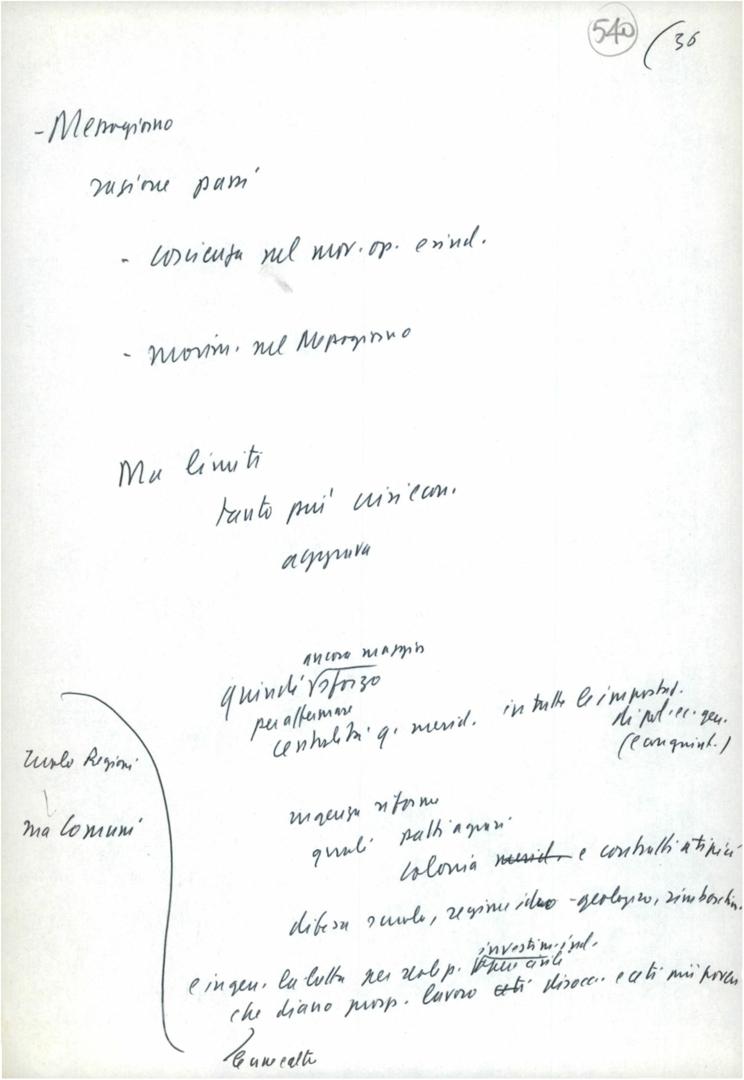 540 (36
- Mezzogiorno
passi
- coscienza nel mov. op. e sind.
- movim. nel Mezzogiorno
Ma limiti
tanto più crisi econ.
aggrava
ancora maggior
quindi sforzo
per affermare
centralità q. merid. in tutte le impostaz.
di pol. ec. gen.
(e conquist.)
ruolo Regioni
ma Comuni
urgenza riforme
quali patti agrari
colonia merid. e contratti atipici
difesa suolo, regime idro-geologico, rimboschim.
investim. ind.
e in gen. la lotta per opere civili
che diano prosp. lavoro disocc. e ceti più poveri